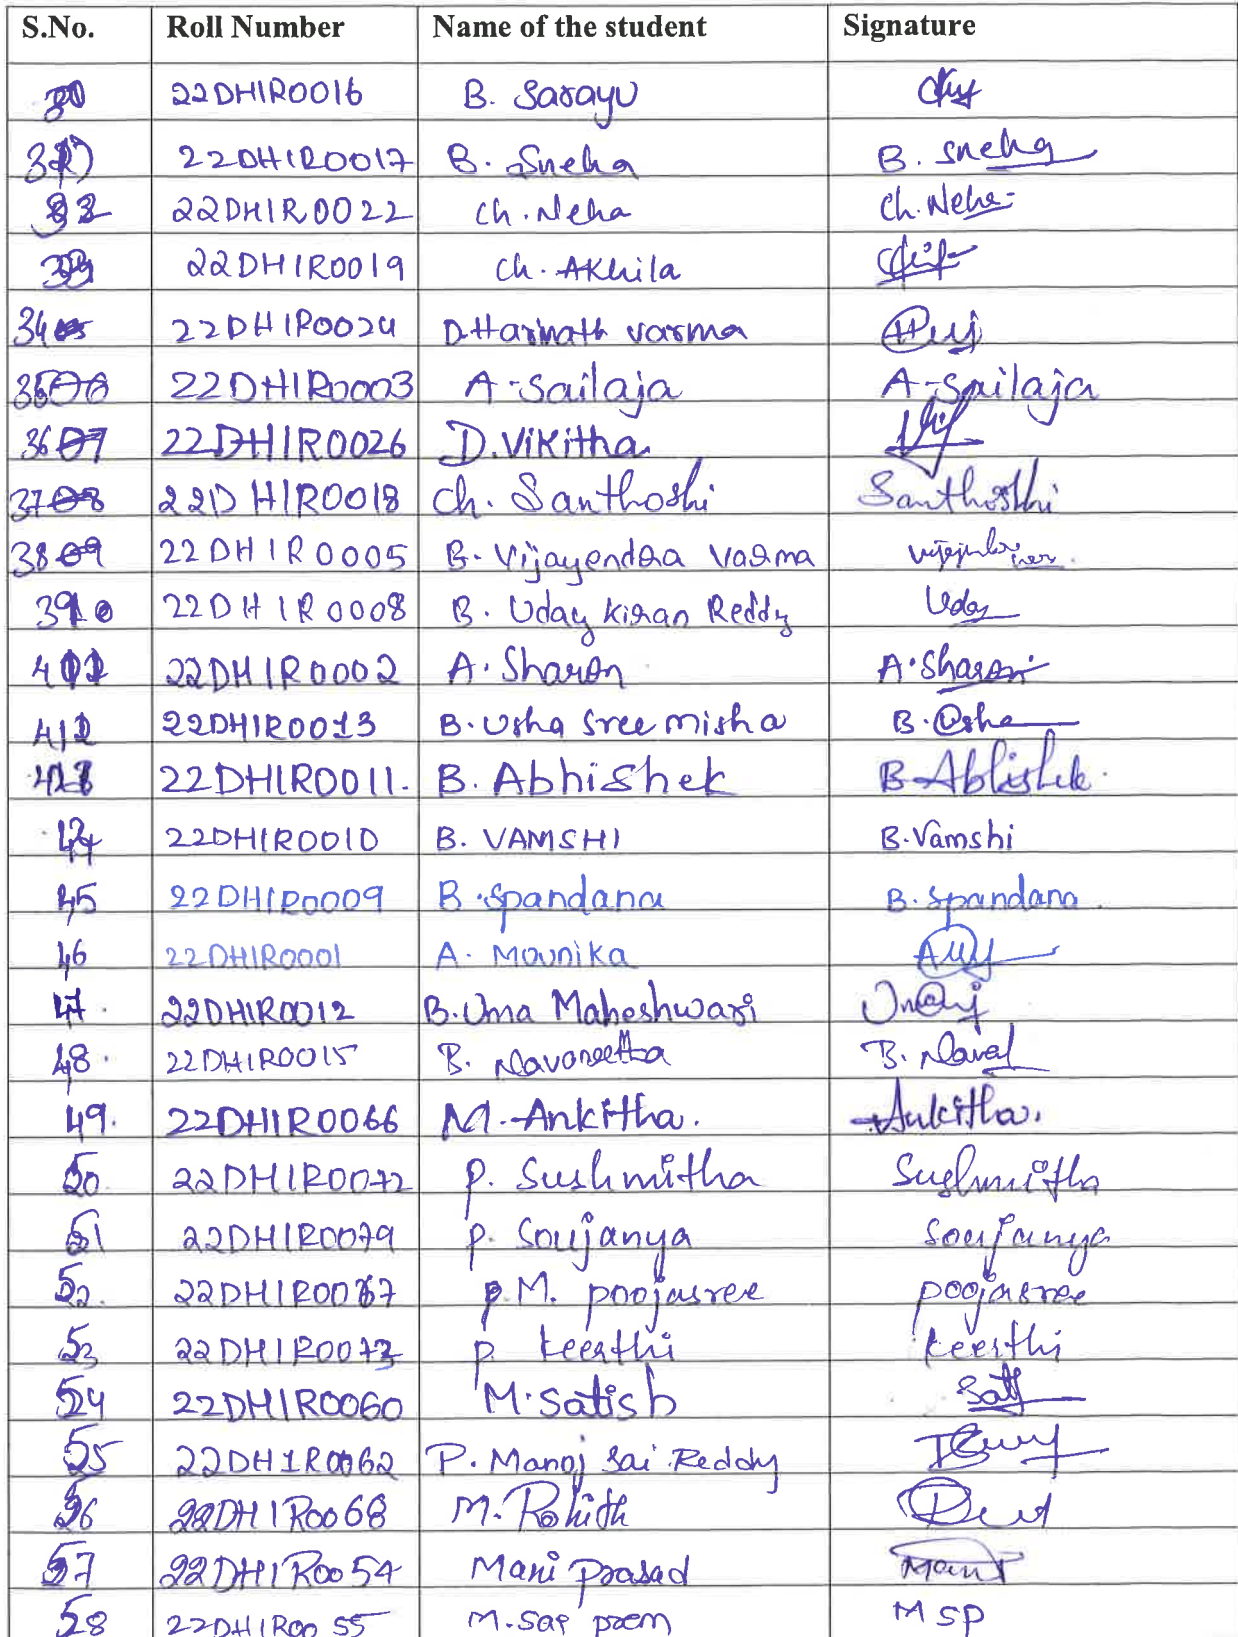 S.No. Roll Number Name of the student Signature
30 22DHIR0016 B. Sarayu
31) 22DHIR0017 B. Sneha B. Sneha
32 22DHIR0022 Ch. Neha Ch. Neha
33 22DHIR0019 Ch. Akhila
34 22DHIR0024 D Harinath varma
35 22DHIR0003 A-Sailaja A-Sailaja
36 22DHIR0026 D. Vikitha
37 22DHIR0018 Ch. Santhoshi Santhoshi
38 22DHIR0005 B. Vijayendra Varma
39 22DHIR0008 B. Uday Kiran Reddy Uday
22DHIR0002 A. Sharon A. Sharon
22DHIR0013 B. Usha Sree misha B. Usha
22DHIR0011. B. Abhishek B Abhishek.
44 22DHIR0010 B. VAMSHI B. Vamshi
45 22DHIR0009 B. Spandana B. Spandana
46 22DHIR0001 A. Mounika
47 22DHIR0012 B. Uma Maheshwari
48. 22DHIR0015 B. Navaneetha B. Naval
49. 22DHIR0066 M. Ankitha. Ankitha.
50 22DHIR0072 P. Sushmitha Sushmitha
51 22DHIR0079 P. Soujanya Soujanya
52. 22DHIR0067 P.M. poojasree poojasree
53 22DHIR0073 P. keerthi keerthi
54 22DHIR0060 M. Satish
55 22DHIR0062 P. Manoj Sai Reddy
56 22DHIR0068 M. Rohith
57 22DHIR0054 Mani Prasad Mani
58 22DHIR0055 M. Sai prem M SP